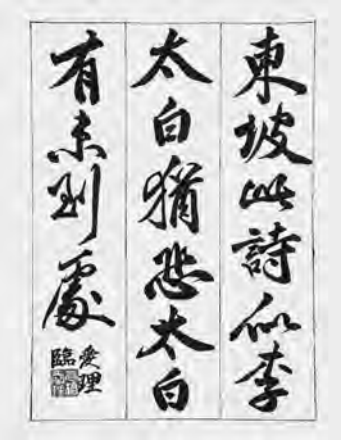 東坡此詩似李
太白猶恐太白
有未到處
愛理
臨